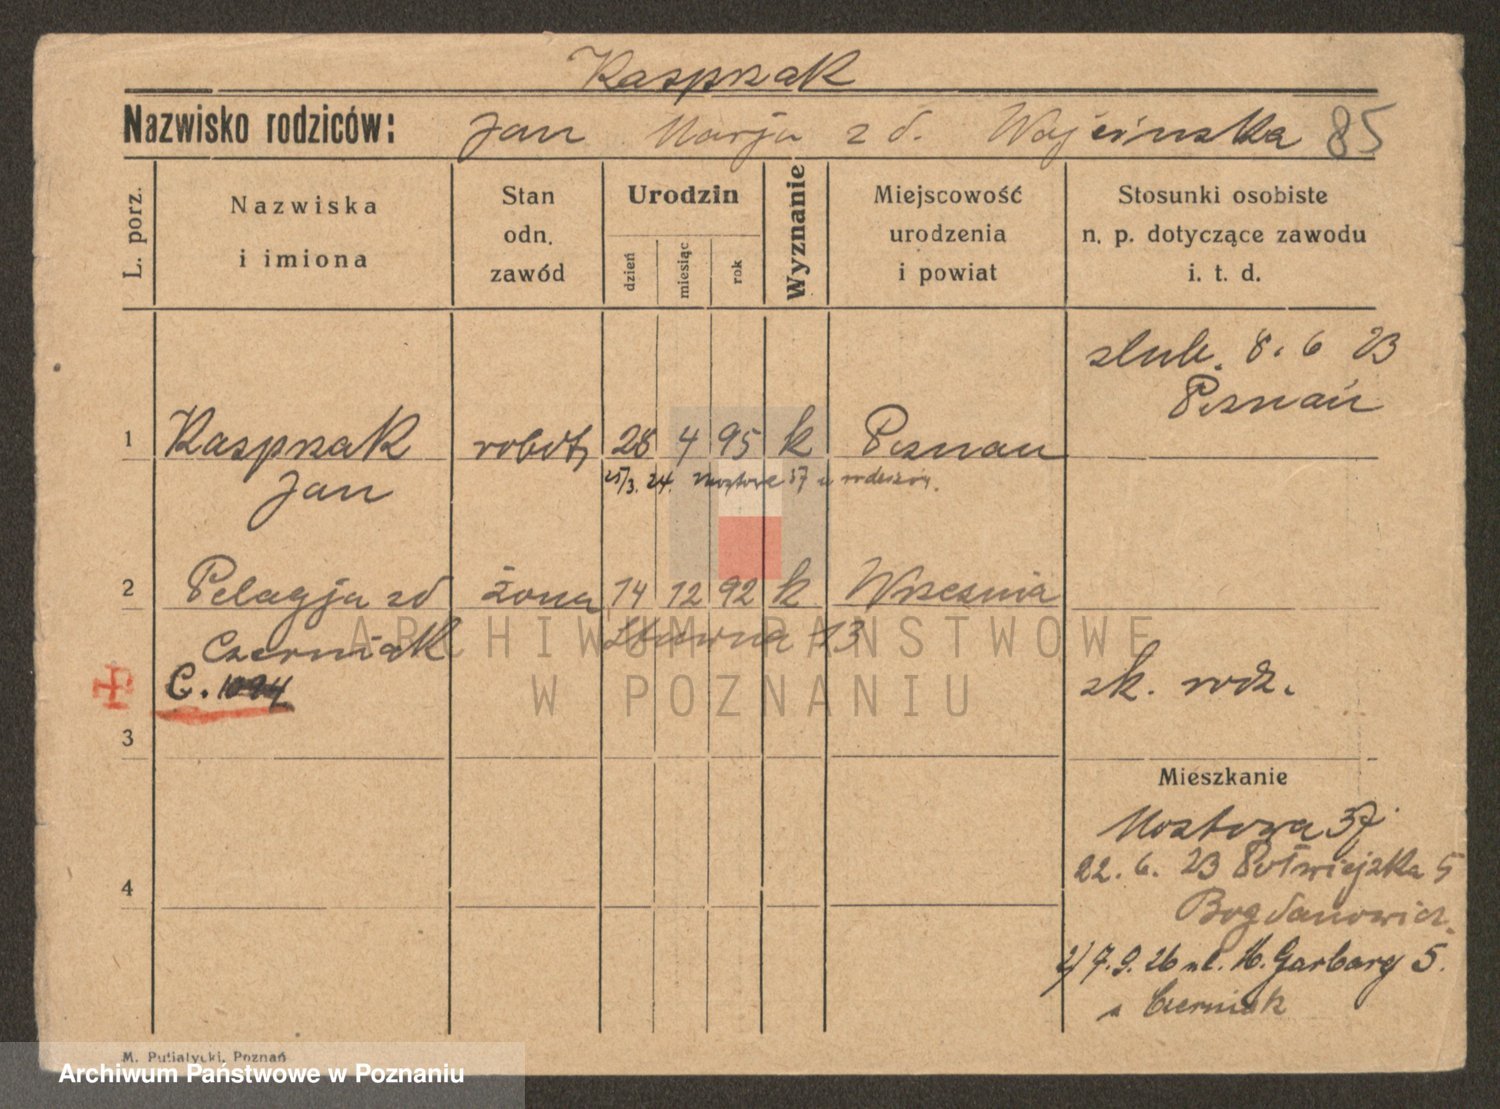 Kasprzak
Nazwisko rodziców: Jan Marja z d. Wojcinska 85
L. porz.
Nazwiska
i imiona
Stan
odn.
zawód
Urodzin
dzień
miesiąc
rok
Wyznanie
Miejscowość
urodzenia
i powiat
Stosunki osobiste
n. p. dotyczące zawodu
i. t. d.
ślub. 8. 6 23
Poznań
1 Kasprzak robot. 28 4 95 k Poznań
Jan
25/3. 24. Mostowa 37 u rodziców.
2 Pelagja zd żona 14 12 92 k Września
Czerniak
13
C. 1094
zk. rodz.
3
Mieszkanie
Mostowa 37
22. 6. 23 Półwiejska 5
Bogdanowicz
4
2) 7. 9. 26 ul. M. Garbary 5.
u Czerniak
M. Putiatycki, Poznań
ARCHIWUM PAŃSTWOWE
W POZNANIU
Archiwum Państwowe w Poznaniu